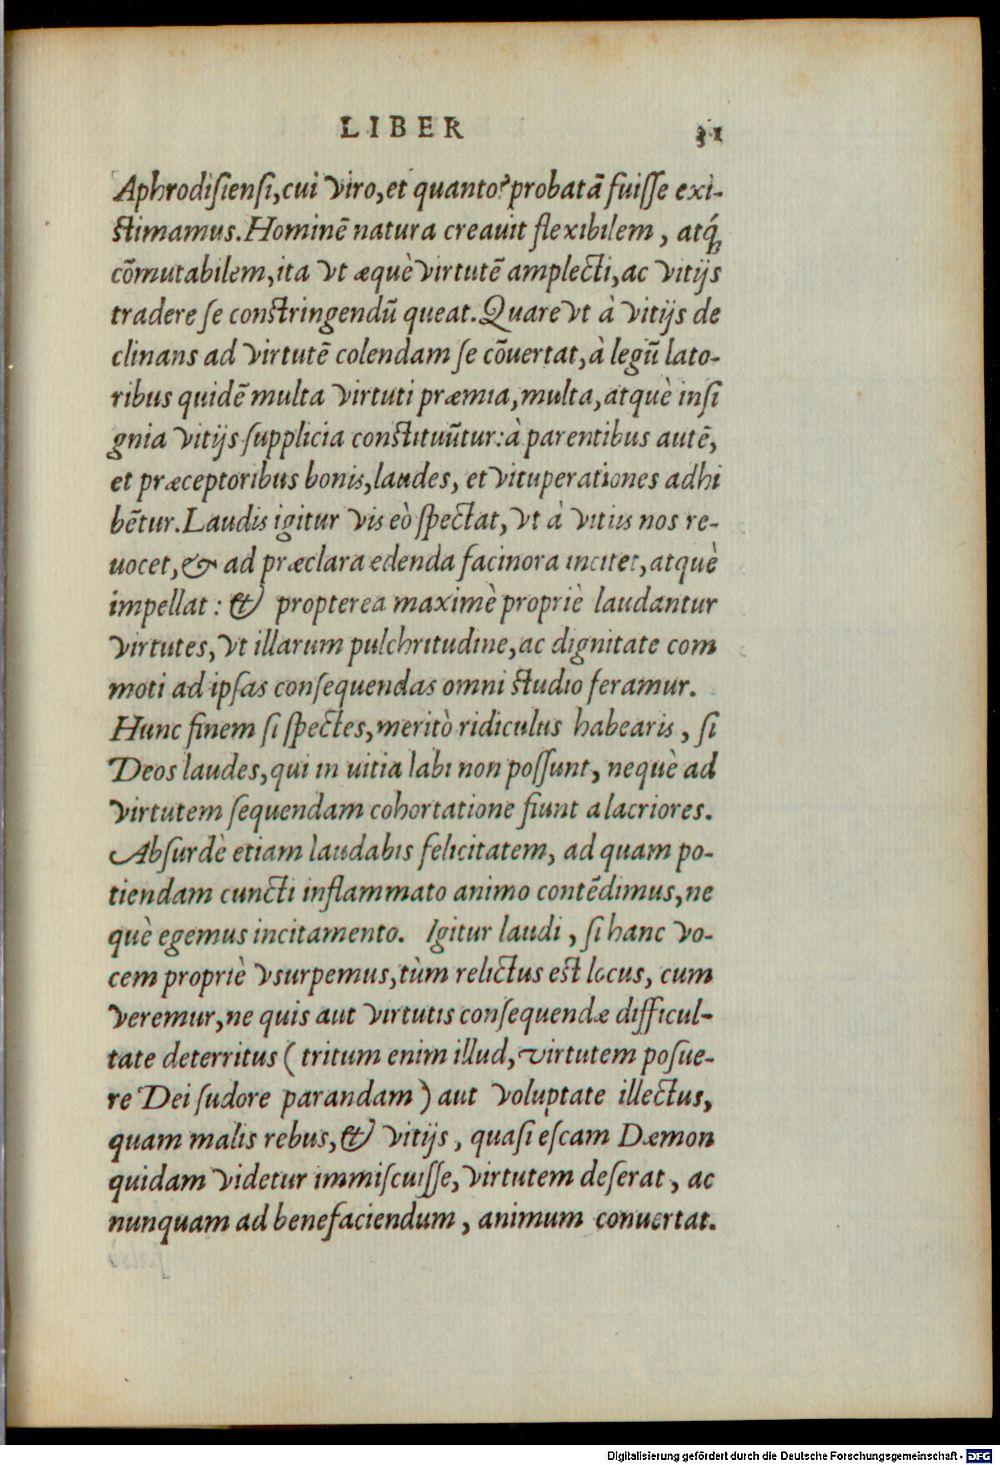 LIBER 31
Aphrodiſienſi, cui viro, et quanto? probatā fuiſſe exi-
ſtimamus. Hominē natura creauit flexibilem, atq́;
cōmutabilem, ita vt æquè virtutē amplecti, ac vitijs
tradere ſe conſtringendū queat. Quare vt à vitijs de
clinans ad virtutē colendam ſe cōuertat, à legū lato-
ribus quidē multa virtuti præmia, multa, atquè inſi
gnia vitijs ſupplicia conſtituūtur: à parentibus autē,
et præceptoribus bonis, laudes, et vituperationes adhi
bētur. Laudis igitur vis eò ſpectat, vt à vitiis nos re-
uocet, & ad præclara edenda facinora incitet, atquè
impellat: & propterea maximè propriè laudantur
virtutes, vt illarum pulchritudine, ac dignitate com
moti ad ipſas conſequendas omni ſtudio feramur.
Hunc finem ſi ſpectes, meritò ridiculus habearis, ſi
Deos laudes, qui in uitia labi non poſſunt, nequè ad
virtutem ſequendam cohortatione fiunt alacriores.
Abſurdè etiam laudabis felicitatem, ad quam po-
tiendam cuncti inflammato animo contēdimus, ne
què egemus incitamento. Igitur laudi, ſi hanc vo-
cem propriè vsurpemus, tùm relictus eſt locus, cum
veremur, ne quis aut virtutis conſequendæ difficul-
tate deterritus (tritum enim illud, virtutem poſue-
re Dei ſudore parandam) aut voluptate illectus,
quam malis rebus, & vitijs, quaſi eſcam Dæmon
quidam videtur immiſcuiſſe, virtutem deſerat, ac
nunquam ad benefaciendum, animum conuertat.
Digitalisierung gefördert durch die Deutsche Forschungsgemeinschaft - DFG